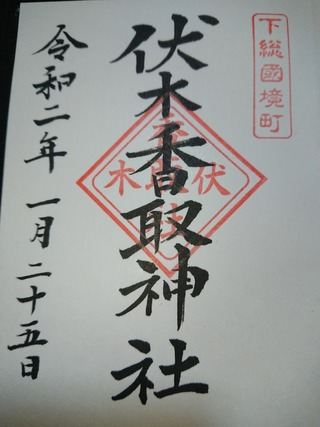 下総國境町
伏木香取神社
令和二年 一月二十五日